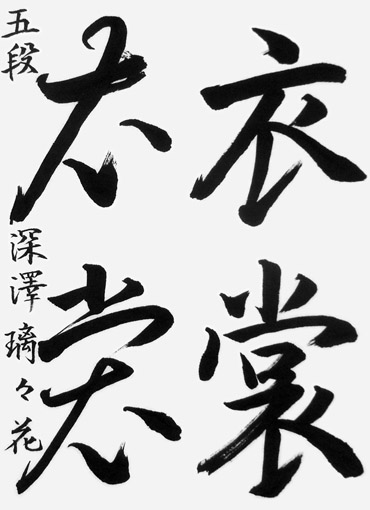 衣裳
衣裳
五段 深澤璃々花